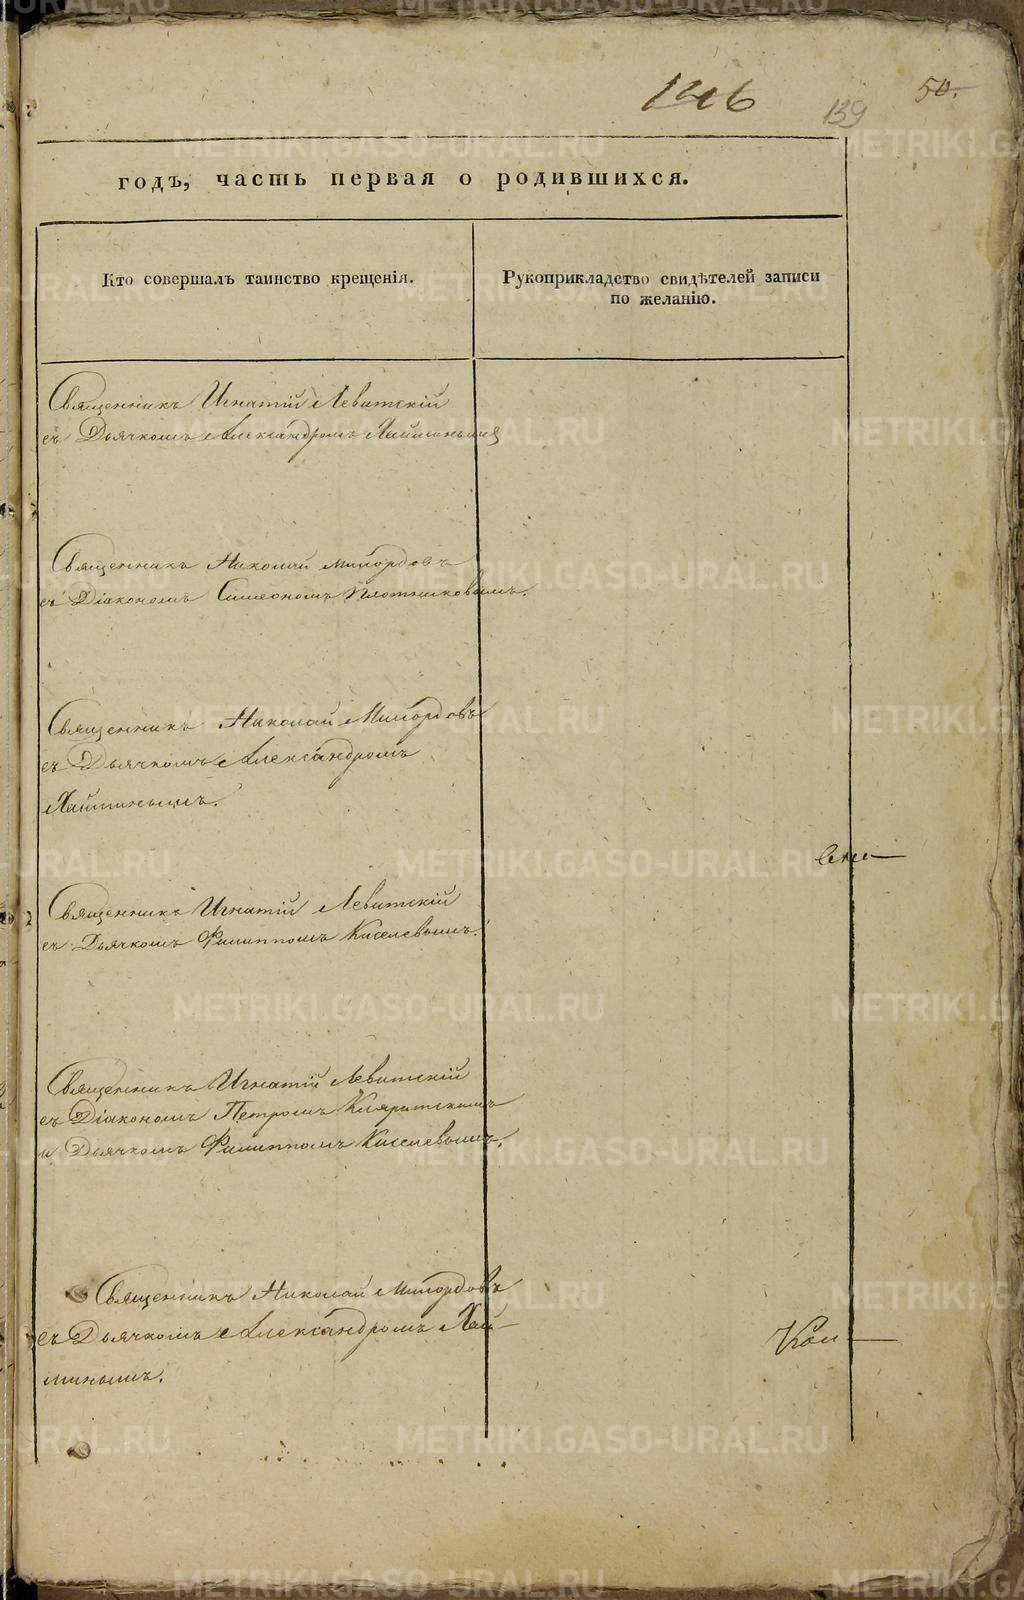 146
139
50.
годъ, часть первая о родившихся.
Кто совершалъ таинство крещенія.
Рукоприкладство свидѣтелей записи
по желанію.
Священникъ Игнатій Левитскій
съ Дьячкомъ Александромъ
Священникъ Николай Милордовъ
съ Діакономъ Симеономъ Плотниковымъ.
Священникъ Николай Милордовъ
съ Дьячкомъ Александромъ
Священникъ Игнатій Левитскій
съ Дьячкомъ Филиппомъ Киселевымъ.
Священникъ Игнатій Левитскій
съ Діакономъ Петромъ
и Дьячкомъ Филиппомъ Киселевымъ.
Священникъ Николай Милордовъ
съ Дьячкомъ Александромъ
METRIKI.GASO-URAL.RU